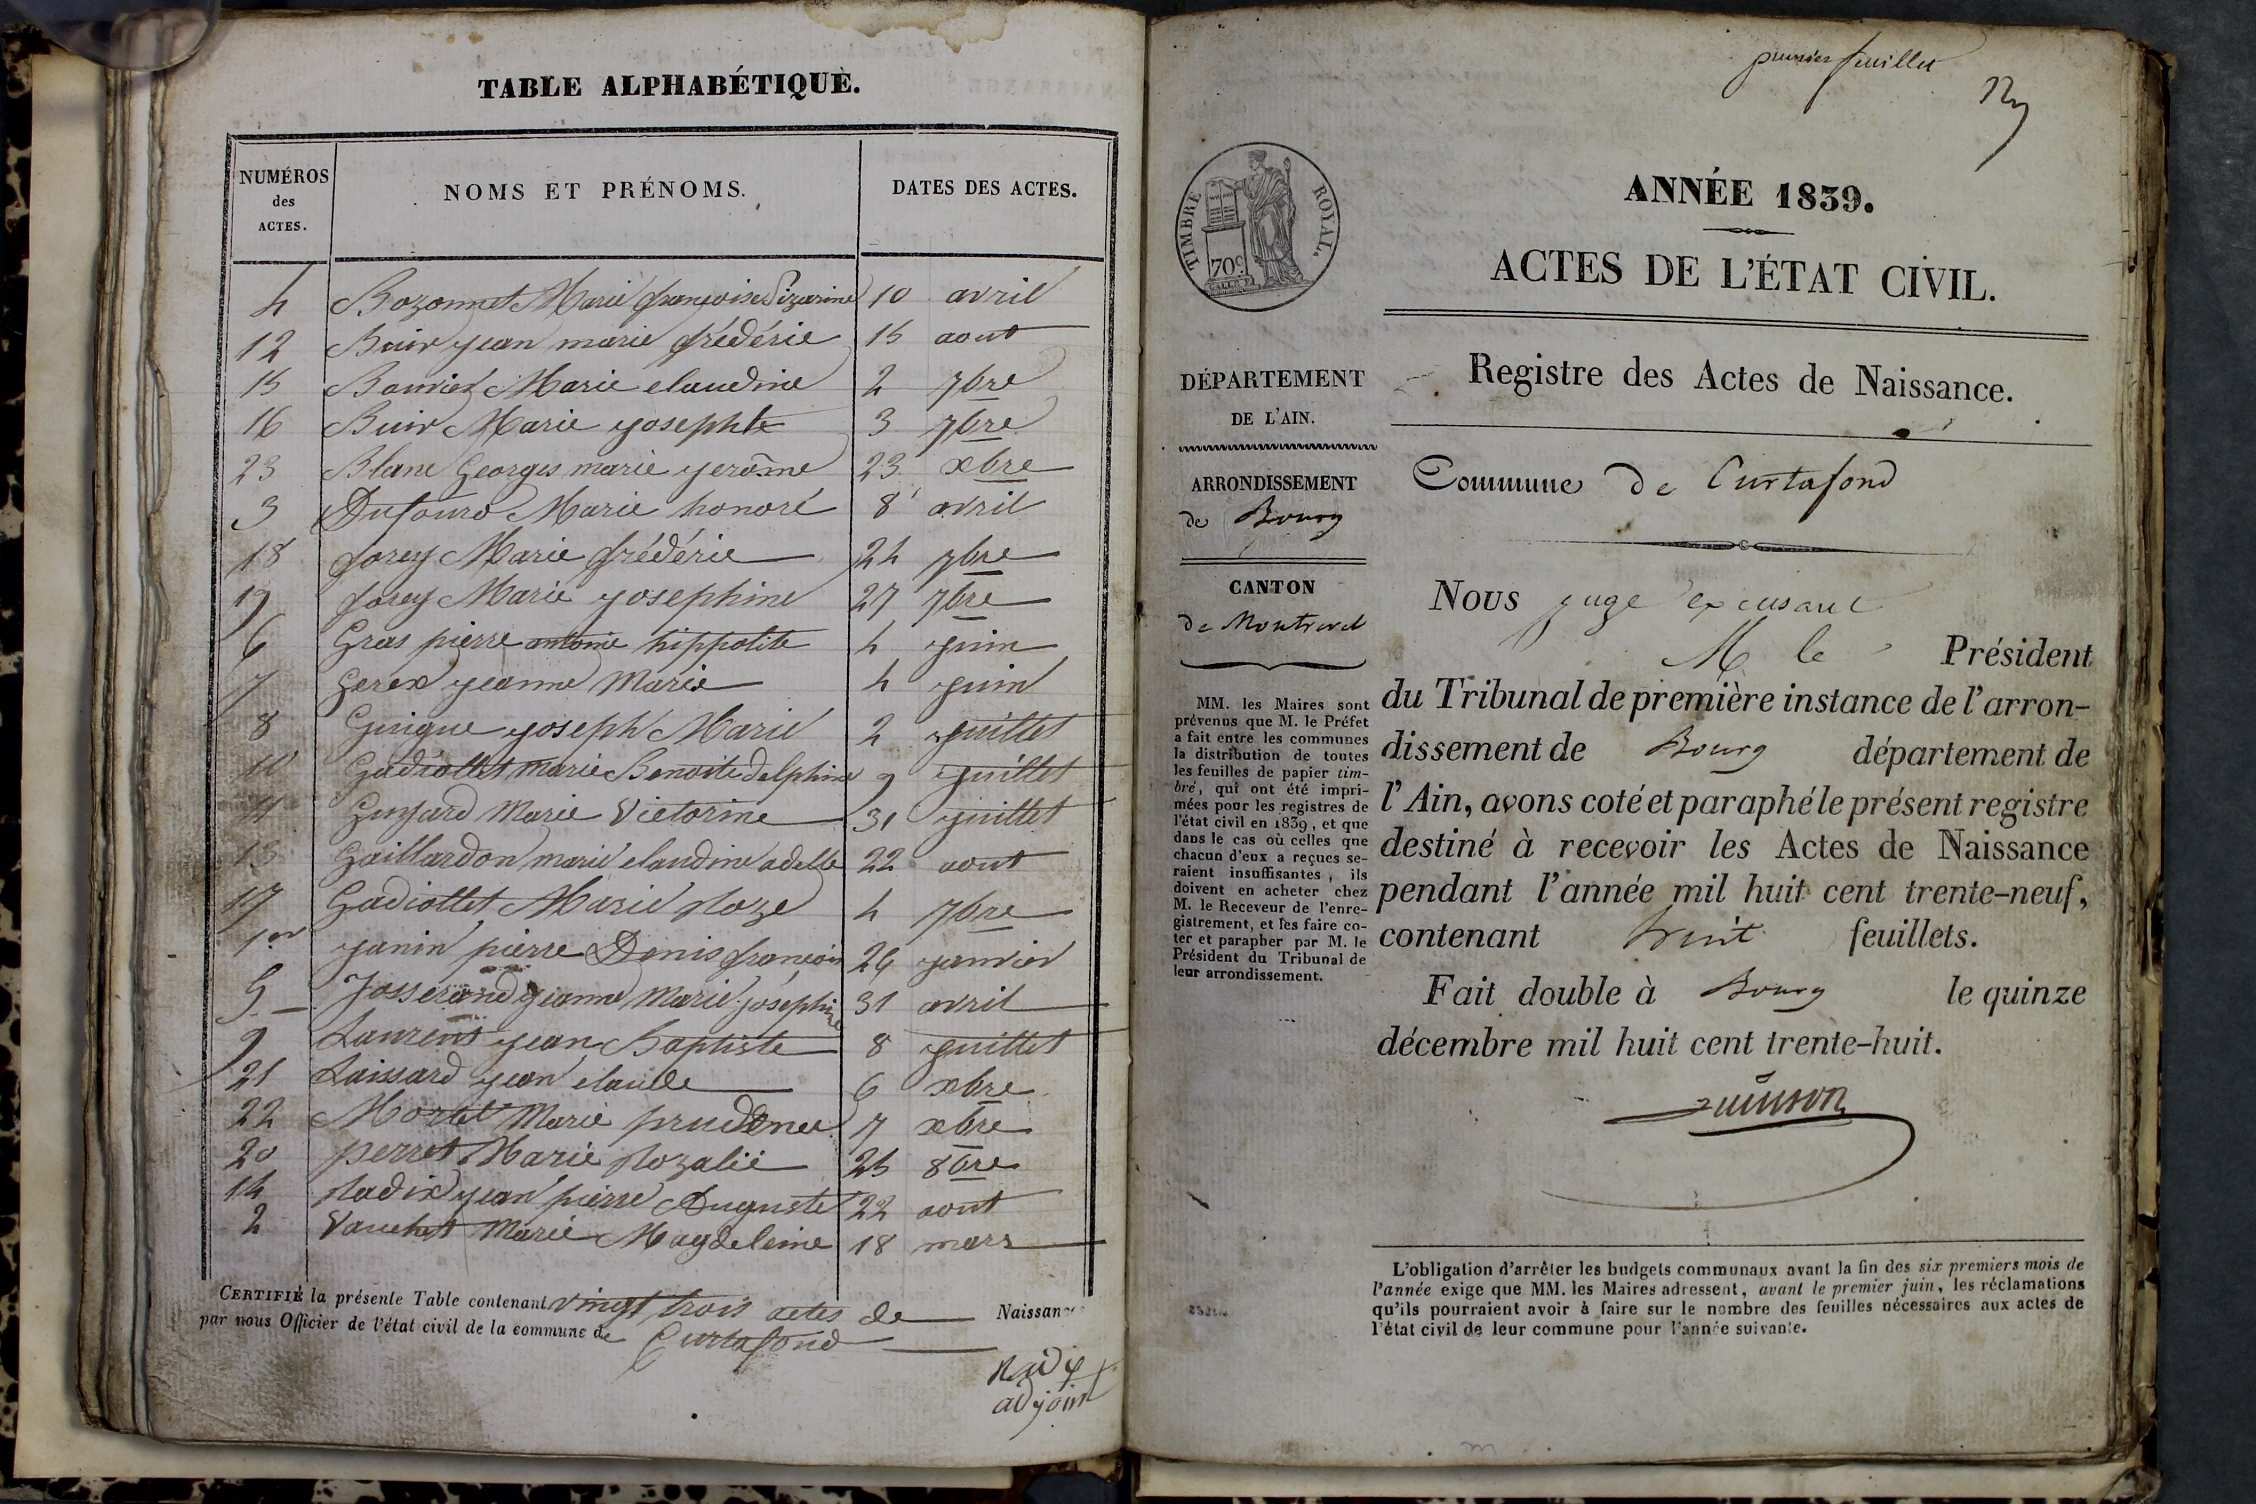 TABLE ALPHABÉTIQUE.
NUMÉROS
des
ACTES.
NOMS ET PRÉNOMS.
DATES DES ACTES.
4 Bozonnet Marie françoise 10 avril
12 Buir jean marie frédéric 15 aout
15 Bouvier Marie claudine 2 7bre
16 Buir Marie josephte 3 7bre
23 Blanc Georges marie jerôme 23 xbre
3 Dufour Marie honoré 8 avril
18 forey Marie frédéric 24 7bre
19 forey Marie josephine 27 7bre
6 Gras pierre antoine hippolite 4 juin
7 Gerex jeanne Marie 4 juin
8 Guigue joseph Marie 2 juillet
10 Gadiollet marie Benoite delphine 9 juillet
11 Guyard Marie Victorine 31 juillet
13 Gaillardon marie claudine adelle 22 aout
17 Gadiollet Marie Roze 4 7bre
1er janin pierre Denis françois 26 janvier
5 Josserand jeanne Marie joséphine 31 avril
9 Laurent jean Baptiste 8 juillet
21 Laissard jean claude 6 xbre
22 Mortel Marie prudence 7 xbre
20 perret Marie Rozalie 25 8bre
14 Radix jean pierre Auguste 22 aout
2 Vauchet Marie Magdeleine 18 mars
CERTIFIÉ la présente Table contenant vingt trois actes de Naissance
par nous Officier de l'état civil de la commune de Curtafond
Radix
adjoint
premier feuillet
ANNÉE 1839.
ACTES DE L'ÉTAT CIVIL.
TIMBRE ROYAL.
70c.
Registre des Actes de Naissance.
DÉPARTEMENT
DE L'AIN.
ARRONDISSEMENT
de Bourg
CANTON
de Montrevel
MM. les Maires sont
prévenus que M. le Préfet
a fait entre les communes
la distribution de toutes
les feuilles de papier tim-
bré, qui ont été impri-
mées pour les registres de
l'état civil en 1839, et que
dans le cas où celles que
chacun d'eux a reçues se-
raient insuffisantes, ils
doivent en acheter chez
M. le Receveur de l'enre-
gistrement, et les faire co-
ter et parapher par M. le
Président du Tribunal de
leur arrondissement.
Commune de Curtafond
Nous juge excusant
M. le Président
du Tribunal de première instance de l'arron-
dissement de Bourg département de
l'Ain, avons coté et paraphé le présent registre
destiné à recevoir les Actes de Naissance
pendant l'année mil huit cent trente-neuf,
contenant huit feuillets.
Fait double à Bourg le quinze
décembre mil huit cent trente-huit.
L'obligation d'arrêter les budgets communaux avant la fin des six premiers mois de
l'année exige que MM. les Maires adressent, avant le premier juin, les réclamations
qu'ils pourraient avoir à faire sur le nombre des feuilles nécessaires aux actes de
l'état civil de leur commune pour l'année suivante.